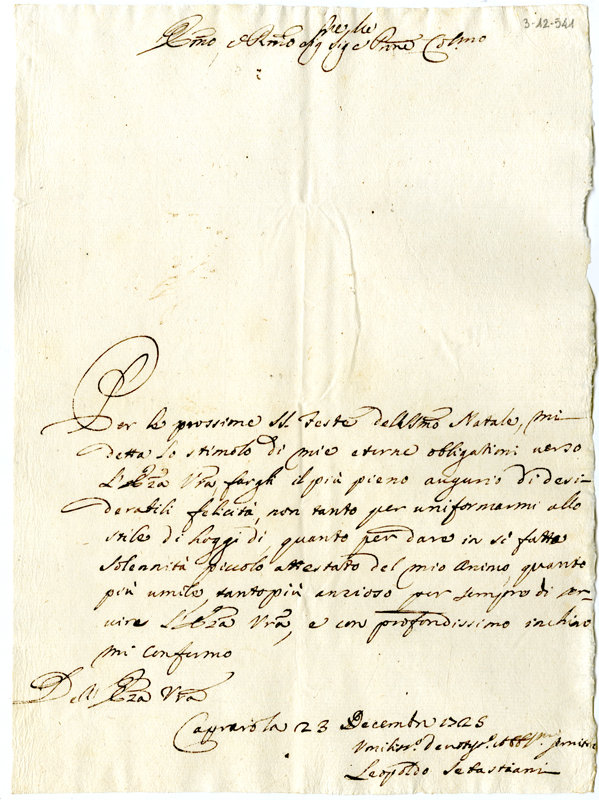 3-12-541
Emo e Rmo Sig Sig e Prne Colmo
Per le prossime SS. Feste dell Smo Natale, mi
detta lo stimolo di mie eterne obligationi verso
L'Eza Vra fargli il più pieno augurio di desi-
derabili felicità, non tanto per uniformarmi allo
stile di hoggi di quanto per dare in si fatta
solennità piccolo attestato del mio animo quanto
più umile, tanto più anzioso per sempre di ser-
vire L'Eza Vra, e con profondissimo inchino
mi confermo
Dell Eza Vra
Caprarola 23 Decembre 1725
Leopoldo Sebastiani